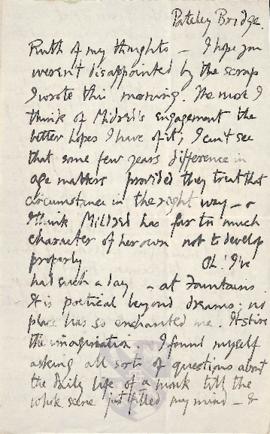 Pateley Bridge.
Ruth of my thoughts – I hope you
weren't disappointed by the scraps
I wrote this morning. The more I
think of Mildred's engagement the
better hopes I have of it, I can't see
that some few years difference in
age matters provided they treat that
circumstance in the right way – &
I think Mildred has far too much
character of her own not to develop
properly Oh! I've
had such a day – at Fountains.
It is poetical beyond dreams; no
place has so enchanted me. It stirs
the imagination. I found myself
asking all sorts of questions about
the daily life of a monk till the
whole scene just filled my mind – &